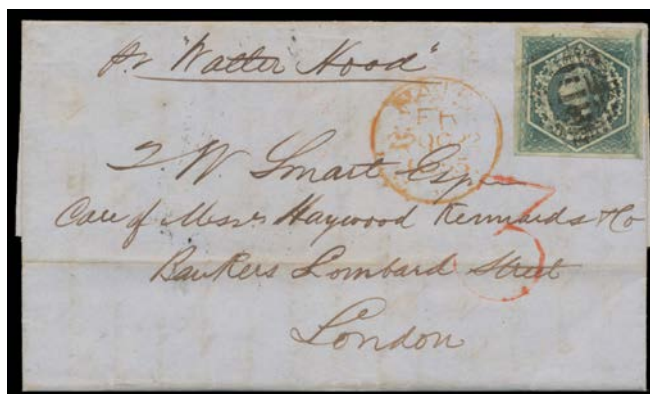 Pr "Walter Hood"
T. W. Smart Esqre
Care of Messrs Haywood Kennards & Co
Bankers Lombard Street
London
3